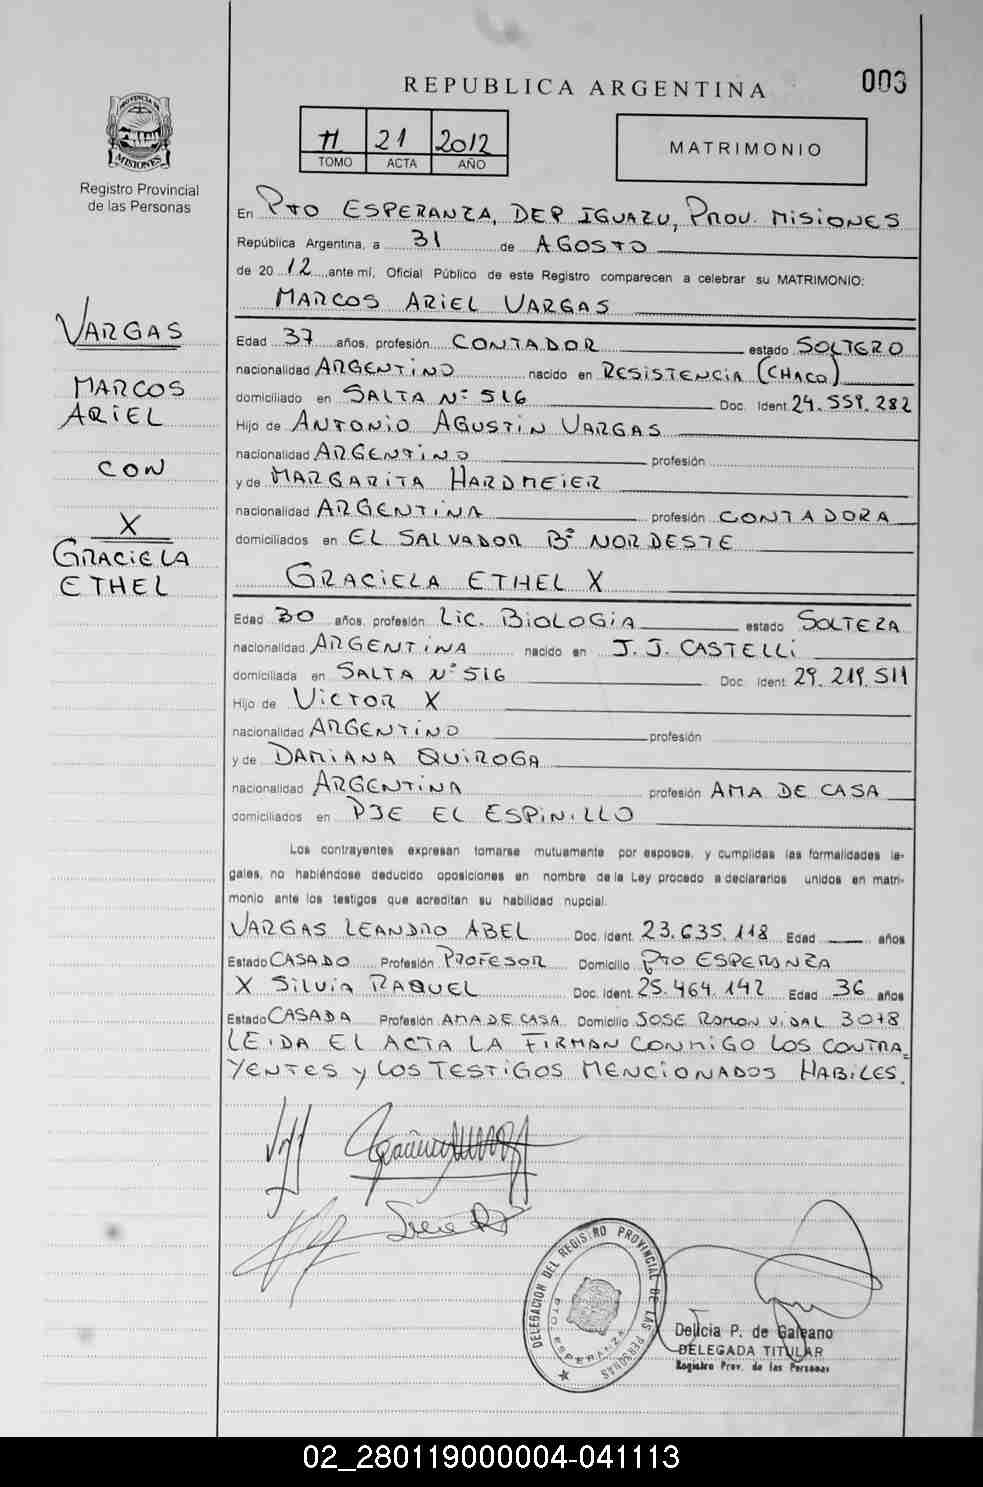 003
REPUBLICA ARGENTINA
PROVINCIA DE
MISIONES
Registro Provincial
de las Personas
21 2012
TOMO ACTA AÑO
MATRIMONIO
En Pto ESPERANZA, DEP IGUAZU, PROV. MISIONES
República Argentina, a 31 de AGOSTO
de 2012, ante mí, Oficial Público de este Registro comparecen a celebrar su MATRIMONIO:
MARCOS ARIEL VARGAS
VARGAS
MARCOS
ARIEL
CON
X
GRACIELA
ETHEL
Edad 37 años, profesión CONTADOR estado SOLTERO
nacionalidad ARGENTINO nacido en RESISTENCIA (CHACO)
domiciliado en SALTA Nº 516 Doc. Ident. 24.559.282
Hijo de ANTONIO AGUSTIN VARGAS
nacionalidad ARGENTINO profesión
y de MARGARITA HARDMEIER
nacionalidad ARGENTINA profesión CONTADORA
domiciliados en EL SALVADOR Bº NORDESTE
GRACIELA ETHEL X
Edad 30 años, profesión LIC. BIOLOGIA estado SOLTERA
nacionalidad ARGENTINA nacido en J.J. CASTELLI
domiciliada en SALTA Nº 516 Doc. Ident. 29.219.511
Hijo de VICTOR X
nacionalidad ARGENTINO profesión
y de DAMIANA QUIROGA
nacionalidad ARGENTINA profesión AMA DE CASA
domiciliados en PJE EL ESPINILLO
Los contrayentes expresan tomarse mutuamente por esposos, y cumplidas las formalidades le-
gales, no habiéndose deducido oposiciones en nombre de la Ley procedo a declararlos unidos en matri-
monio ante los testigos que acreditan su habilidad nupcial.
VARGAS LEANDRO ABEL Doc. Ident. 23.635.118 Edad — años
Estado CASADO Profesión PROFESOR Domicilio Pto ESPERANZA
X SILVIA RAQUEL Doc. Ident. 25.464.142 Edad 36 años
Estado CASADA Profesión AMA DE CASA Domicilio JOSE RAMON VIDAL 3078
LEIDA EL ACTA LA FIRMAN CONMIGO LOS CONTRA_
YENTES y LOS TESTIGOS MENCIONADOS HABILES.
DELEGACION DEL REGISTRO PROVINCIAL DE LAS PERSONAS
PTO. ESPERANZA
Delicia P. de Galeano
DELEGADA TITULAR
Registro Prov. de las Personas
02_280119000004-041113